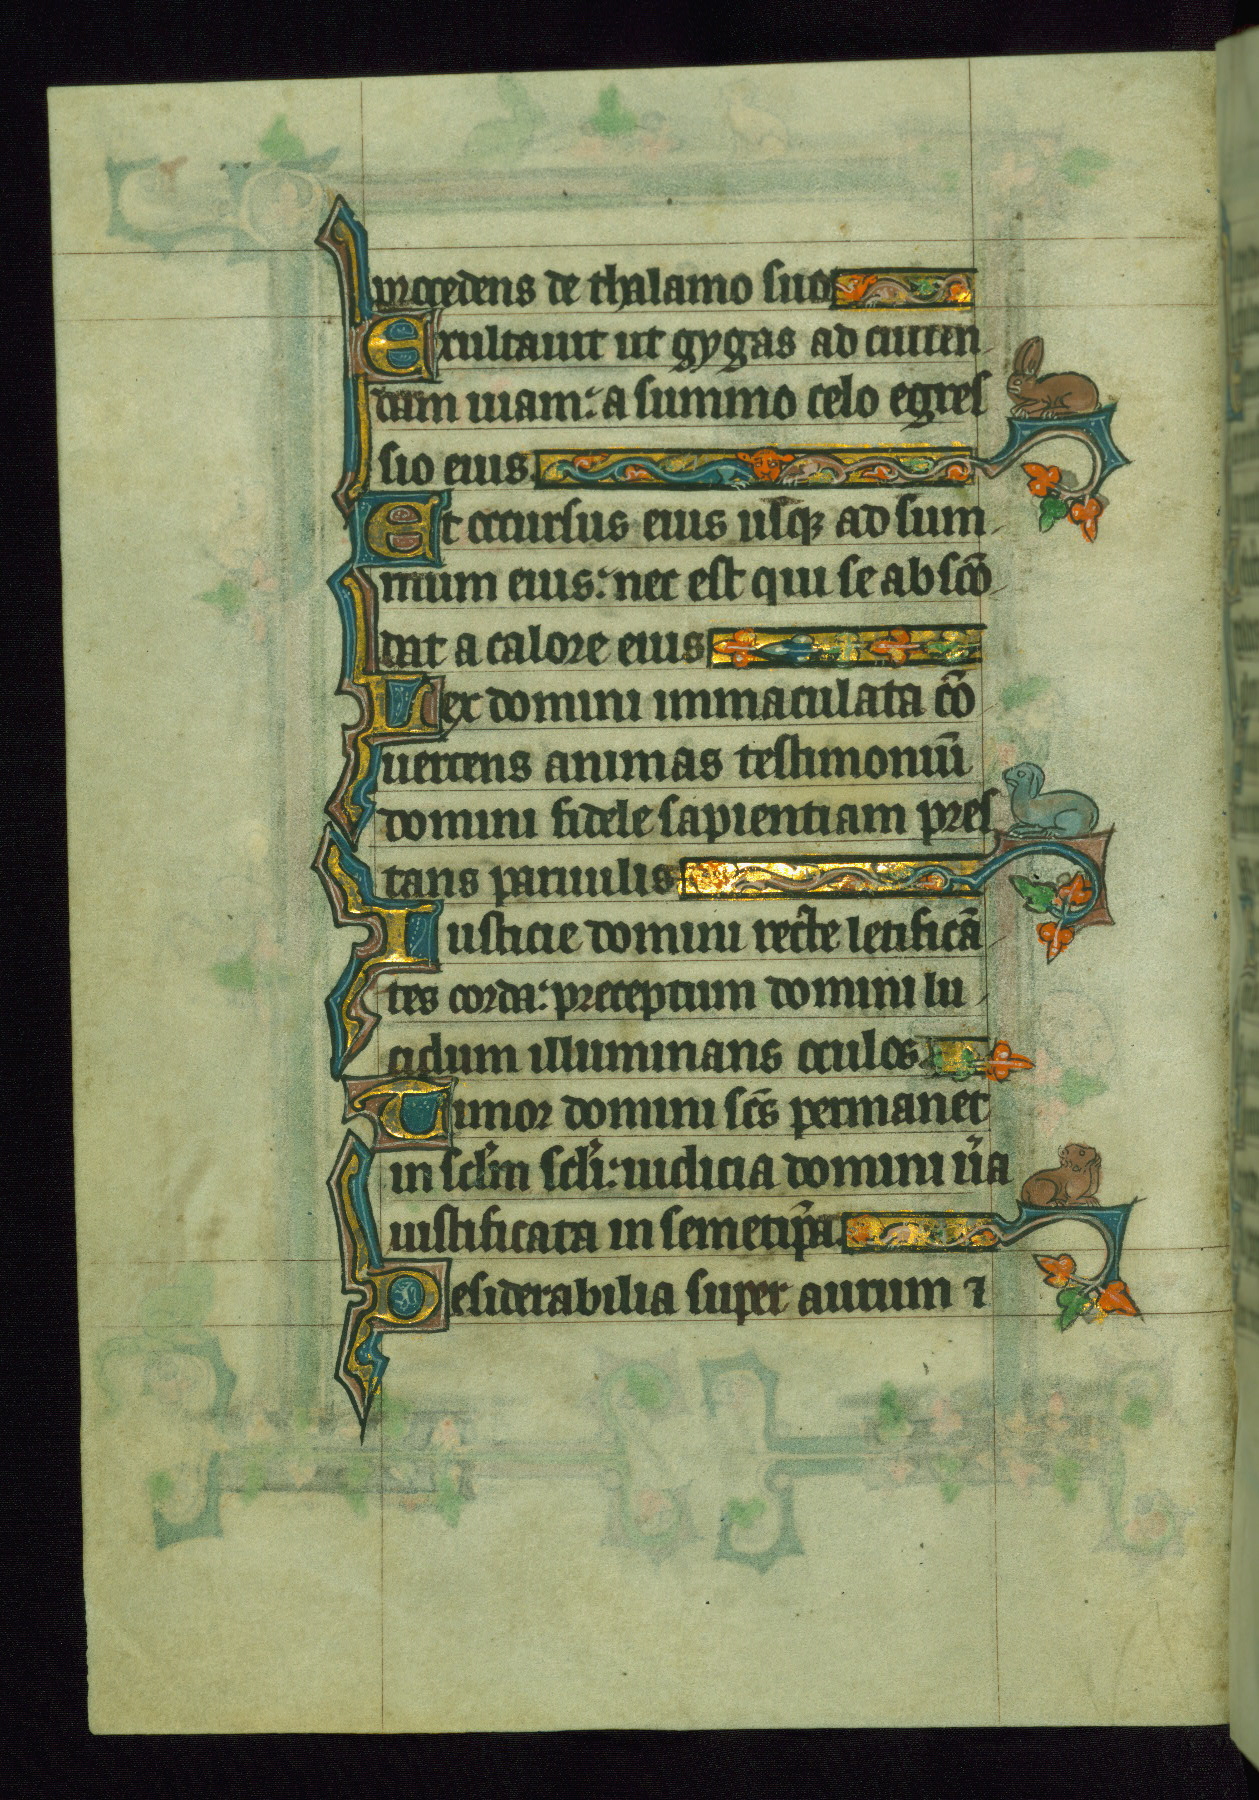 procedens de thalamo suo
Exultauit ut gygas ad curren
dam uiam: a summo celo egres
sio eius.
Et occursus eius usqꝫ ad sum
mum eius: nec est qui se abscō
dat a calore eius
Lex domini immaculata cō
uertens animas testimoniū
domini fidele sapientiam pres
tans paruulis
Iusticie domini recte letificā
tes corda: preceptum domini lu
cidum illuminans oculos.
Timor domini scs̄ permanet
in sclm̄ sclī: iudicia domini ūa
iustificata in semetip̄a.
Desiderabilia super aurum ⁊